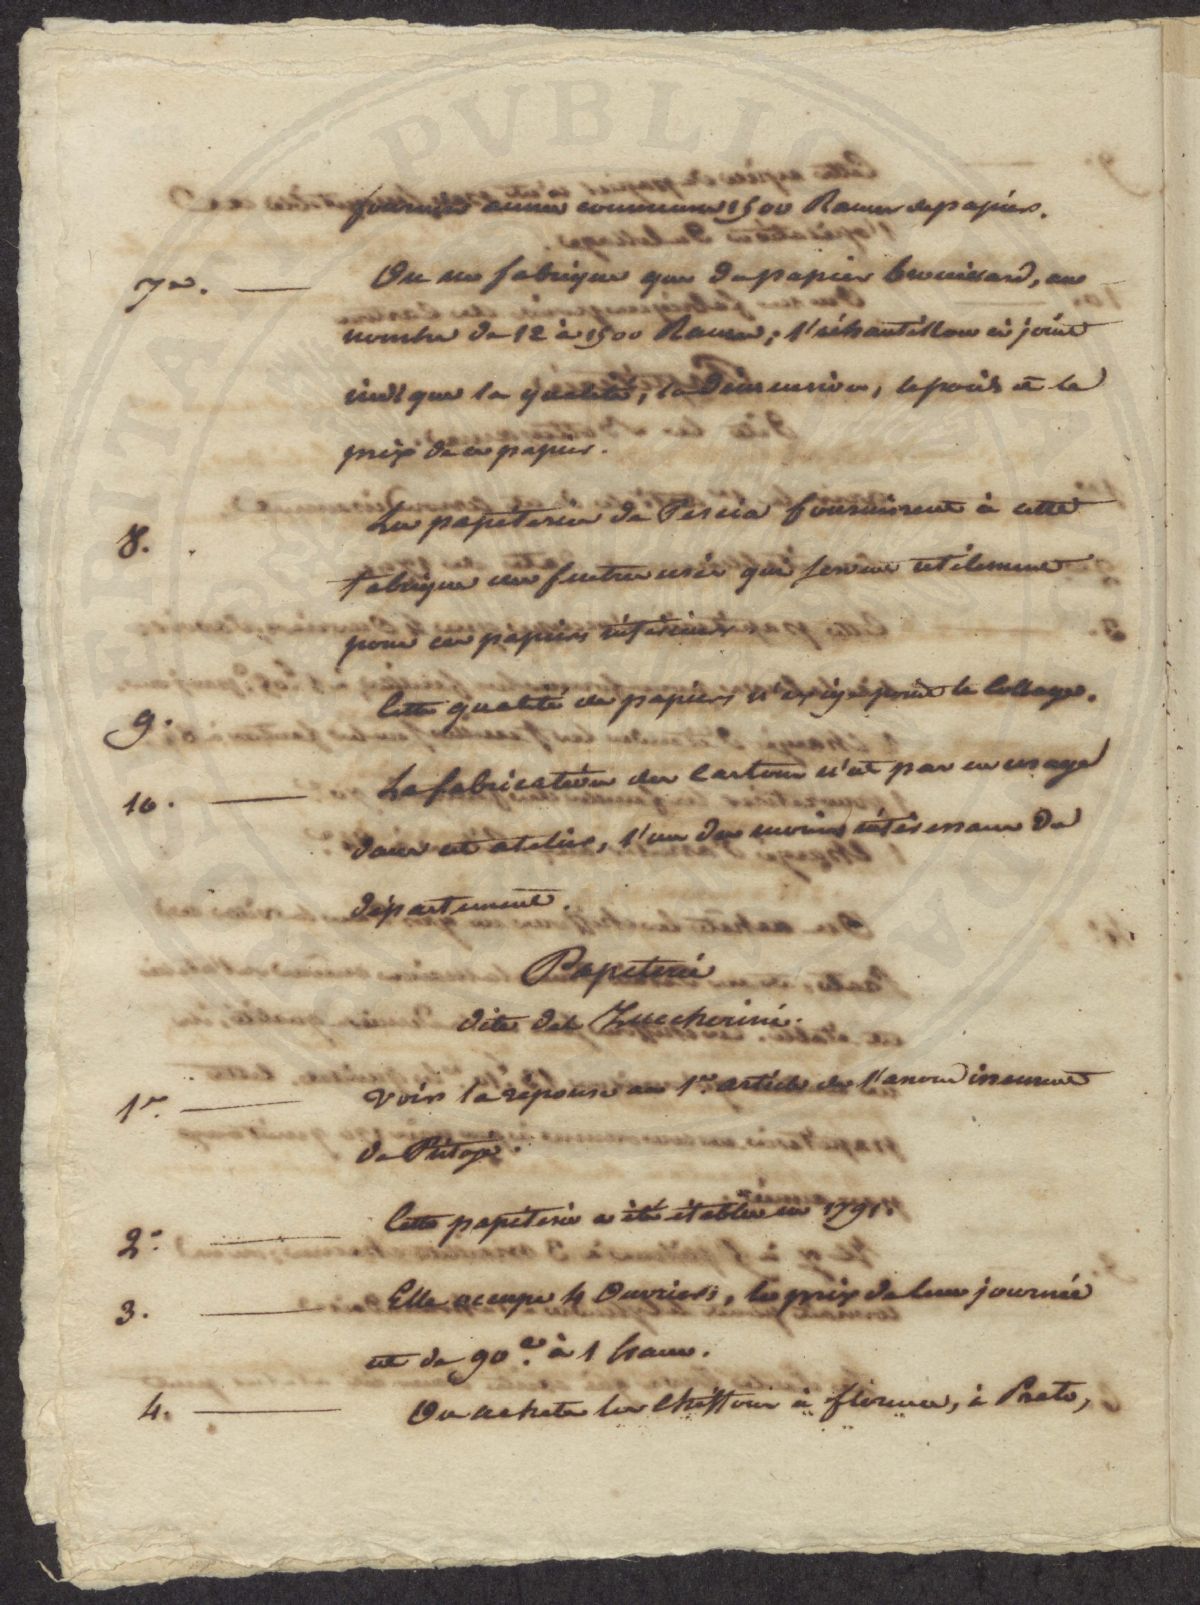 fournir année commune 1500 Rames de papiers.
7e. — On ne fabrique que du papier brouillard, au
nombre de 12 à 1500 Rames; l'échantillon ci joint
indique la qualité, la dimension, le poids et le
prix de ce papier.
8. La papeterie de Pescia fournissent à cette
fabrique des feutres usés qui servent utilement
pour ces papiers inférieurs.
9. Cette qualité de papiers n'exige point le Collage.
10. — La fabrication des Cartons n'est pas en usage
dans cet atelier, l'un des moins intéressans du
département.
Papeterie
dite del Zuccherini.
1er. — Voir la réponse au 1er. article de l'arrondissement
de Pistoye.
2e. — Cette papéterie a été établie en 1791.
3. — Elle occupe 4 Ouvriers, le prix de leur journée
est de 90 c. à 1 franc.
4. — On achete les Chiffons à florence, à Prato,